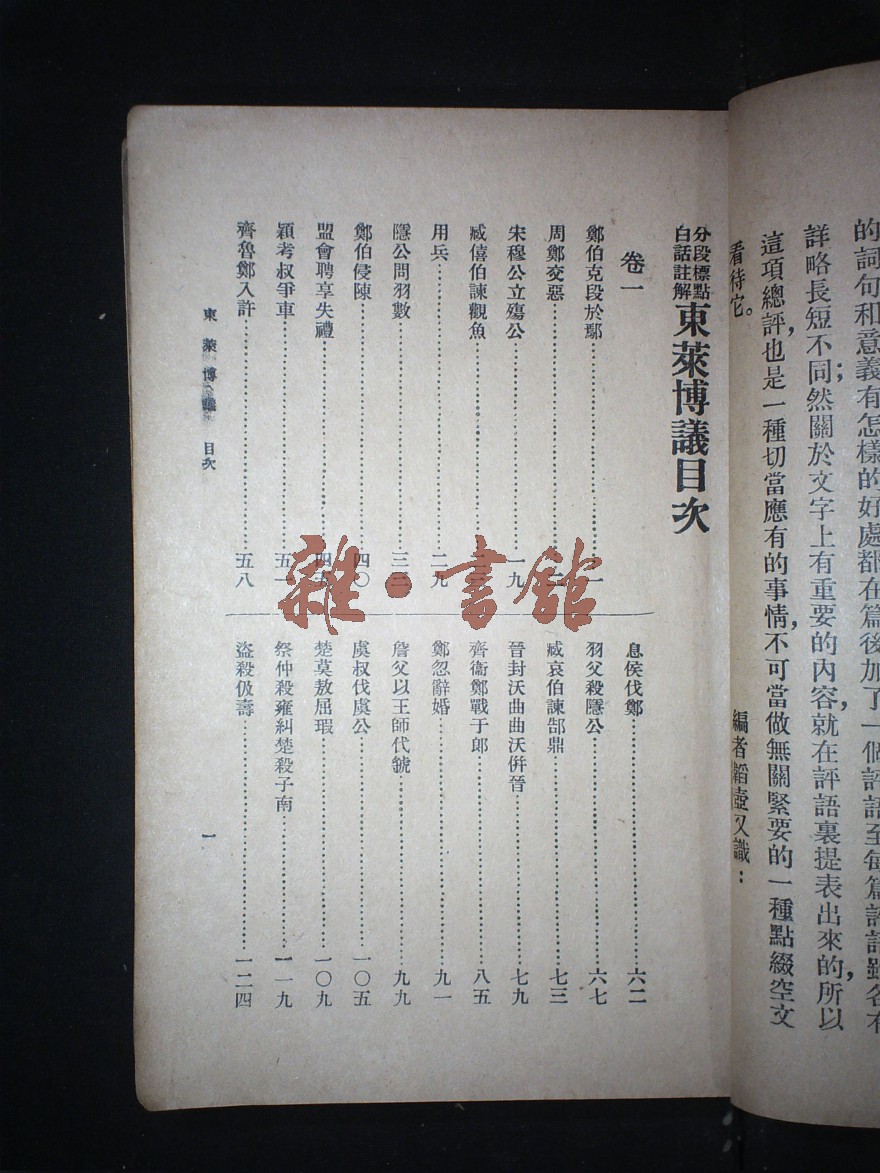 的詞句和意義有怎樣的好處都在篇後加了一個評語至每篇評語雖各有
詳略長短不同;然關於文字上有重要的內容,就在評語裏提表出來的,所以
這項總評,也是一種切當應有的事情,不可當做無關緊要的一種點綴空文
看待它。
編者韜壺又識:
分段標點
白話註解
東萊博議目次
卷一
鄭伯克段於鄢……一
周鄭交惡……
宋穆公立殤公……一九
臧僖伯諫觀魚……
用兵……二九
隱公問羽數……三
鄭伯侵陳……四〇
盟會聘享失禮……四
穎考叔爭車……五一
齊魯鄭入許……五八
息侯伐鄭……六二
羽父殺隱公……六七
臧哀伯諫郜鼎……七三
晉封沃曲曲沃併晉……七九
齊衞鄭戰于郎……八五
鄭忽辭婚……九一
詹父以王師伐虢……九九
虞叔伐虞公……一〇五
楚莫敖屈瑕……一〇九
祭仲殺雍糾楚殺子南……一一九
盜殺伋壽……一二四
東萊博議 目次
一
雜·書館